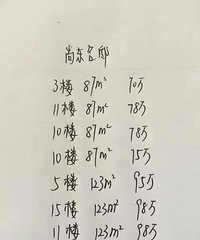 尚东名邸
3楼 87m² 70万
11楼 87m² 78万
10楼 87m² 78万
10楼 87m² 75万
5楼 123m² 95万
15楼 123m² 98万
11楼 123m² 98万